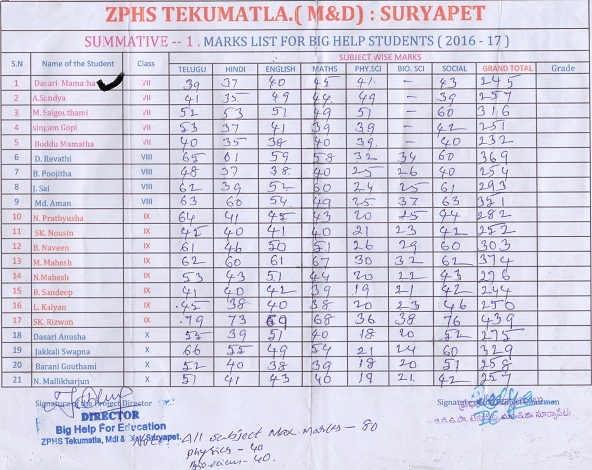 ZPHS TEKUMATLA.( M&D) : SURYAPET
SUMMATIVE -- 1 . MARKS LIST FOR BIG HELP STUDENTS ( 2016 - 17 )
S.N Name of the Student Class SUBJECT WISE MARKS
TELUGU HINDI ENGLISH MATHS PHY.SCI BIO. SCI SOCIAL GRAND TOTAL Grade
1 Dasari Mamatha VII 39 37 40 45 41 - 43 245
2 A.Sandya VII 41 35 49 44 49 - 39 257
3 M. Saigouthami VII 52 53 51 49 51 - 60 316
4 singam Gopi VII 53 37 41 39 39 - 42 251
5 Boddu Mamatha VII 40 35 38 40 39 - 40 232
6 D. Revathi VIII 65 61 59 58 32 34 60 369
7 B. Poojitha VIII 48 37 38 40 25 26 40 254
8 J. Sai VIII 62 39 52 60 24 25 61 293
9 Md. Aman VIII 63 60 54 49 25 37 63 351
10 N. Prathyusha IX 64 41 45 43 20 25 44 282
11 SK. Nousin IX 45 40 41 40 21 23 42 252
12 B. Naveen IX 61 46 50 51 26 29 60 303
13 M. Mahesh IX 62 60 61 67 30 32 62 374
14 N.Mahesh IX 53 43 51 44 20 22 43 276
15 B. Sandeep IX 41 40 42 39 19 21 42 244
16 L. Kalyan IX 45 38 40 38 20 23 46 250
17 SK. Rizwan IX 79 73 69 68 36 38 76 439
18 Dasari Anusha X 55 39 51 40 18 20 52 275
19 Jakkali Swapna X 66 55 49 54 21 24 60 329
20 Barani Gouthami X 52 40 38 39 18 20 51 258
21 N. Mallikharjun X 51 41 43 40 19 21 42 257
Signature of the Project Director
DIRECTOR
Big Help For Education
ZPHS Tekumatla, Mdl & Dist Suryapet.
Note: All subject Max. Marks - 80
physics - 40
Bio sciences - 40.